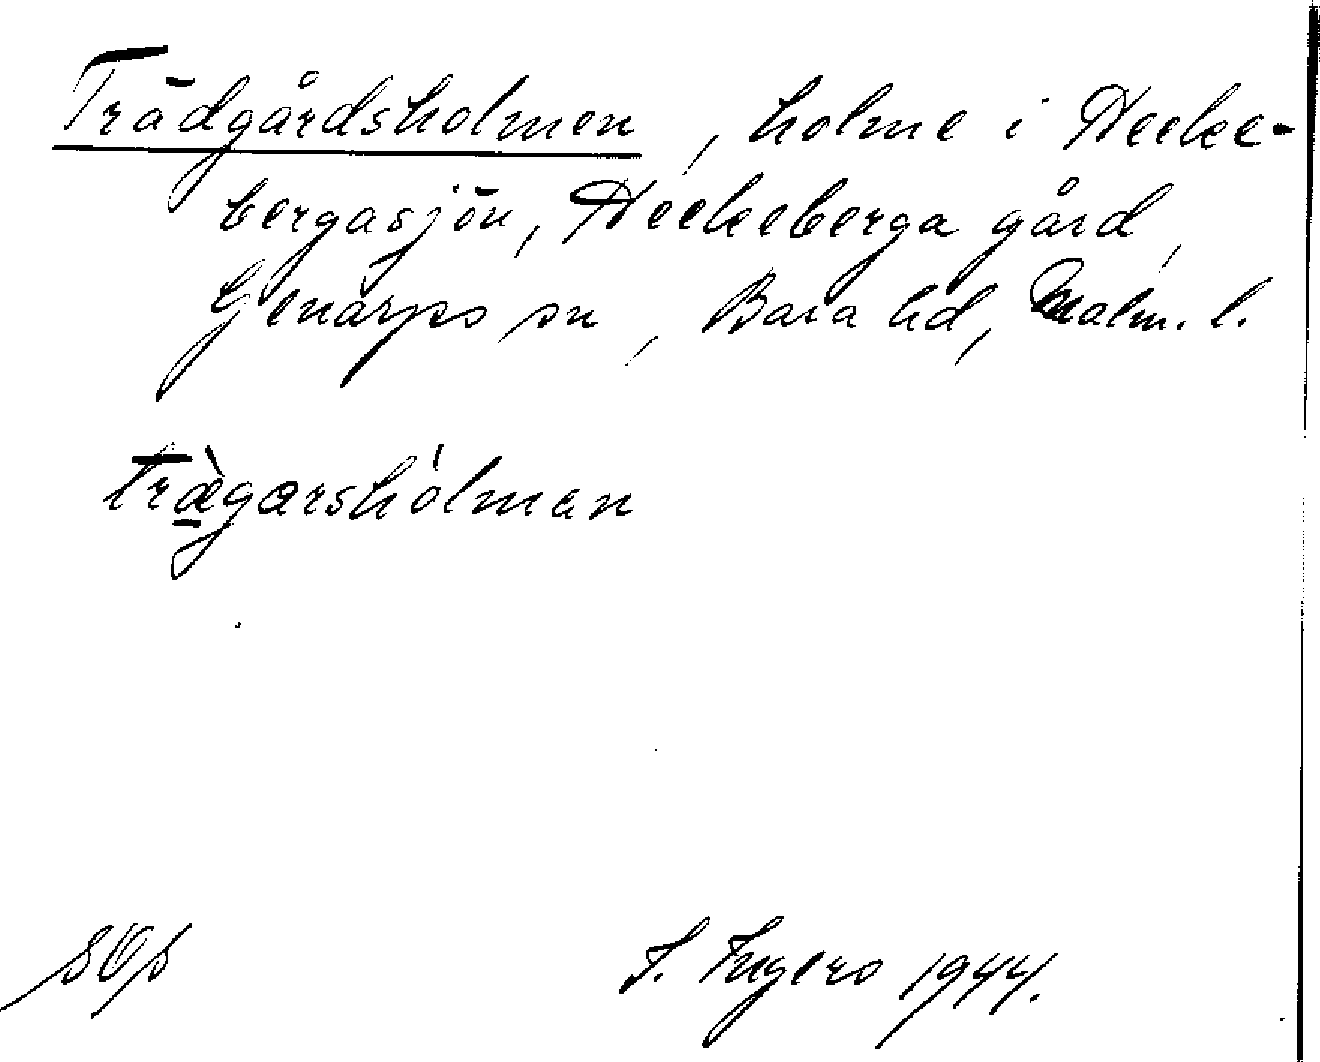 Trädgårdsholmen, holme i Hecke-
bergasjön, Heckeberga gård,
Genarps sn, Bara hd, Malm. l.
træ̀garshólmen
I. Ingers 1944.